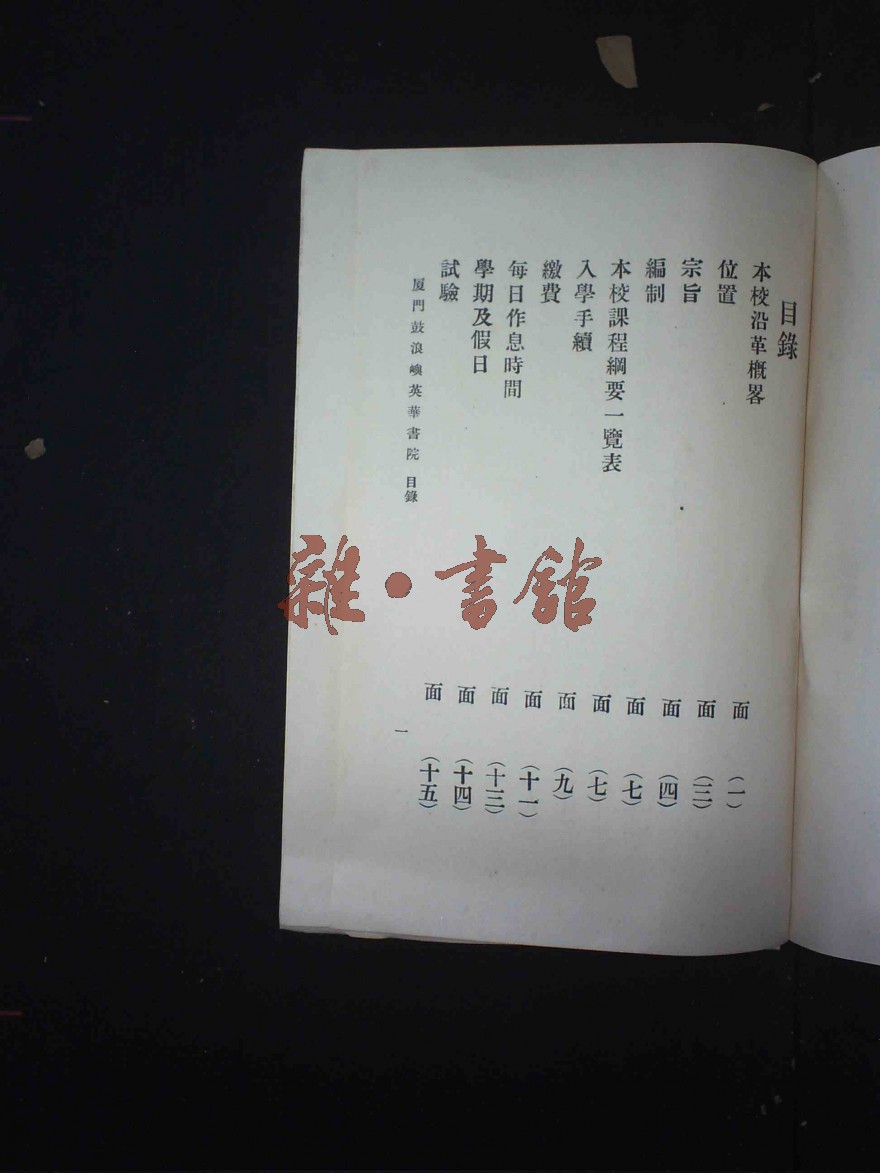 目錄
本校沿革概畧 面 (一)
位置 面 (三)
宗旨 面 (四)
編制 面 (七)
本校課程綱要一覽表 面 (七)
入學手續 面 (九)
繳費 面 (十一)
每日作息時間 面 (十三)
學期及假日 面 (十四)
試驗 面 (十五)
厦門鼓浪嶼英華書院 目錄 一
雜·書館